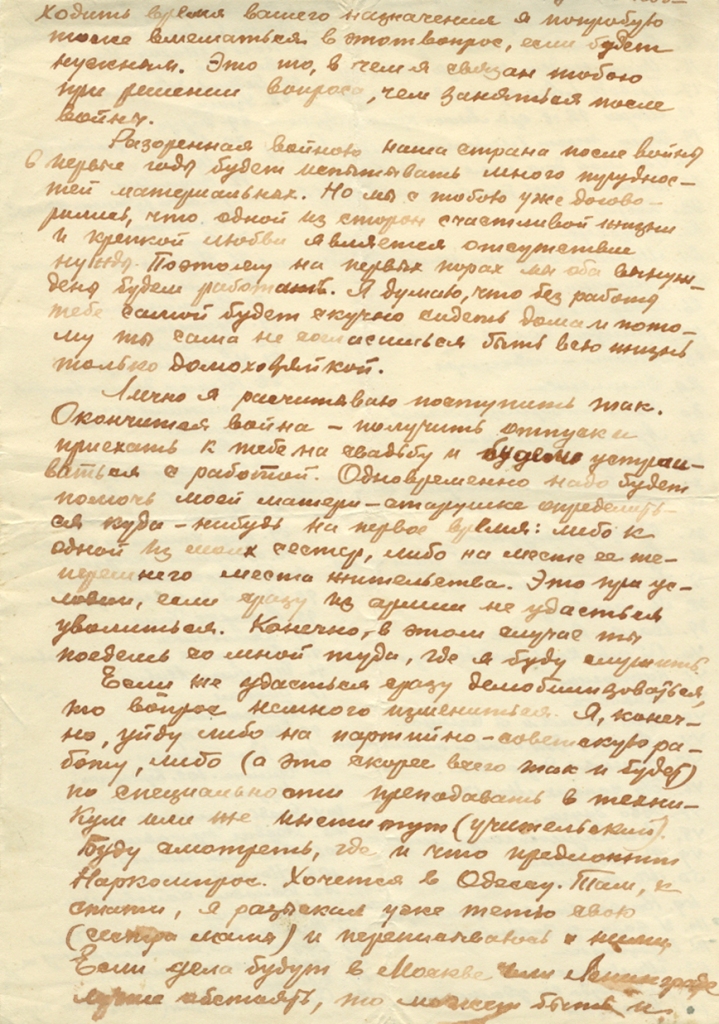 ходить время вашего назначения я попробую
тоже вмешаться в этот вопрос, если будет
нужным. Это то, в чем я связан тобою
при решении вопроса, чем заняться после
войны.
Разоренная войною наша страна после войны
в первые годы будет испытывать много труднос-
тей материальных. Но мы с тобою уже догово-
рились, что одной из сторон счастливой жизни
и крепкой любви является отсутствие
нужды. Поэтому на первых порах мы оба вынуж-
дены будем работать. Я думаю, что без работы
тебе самой будет скучно сидеть дома и пото-
му ты сама не согласишься быть всю жизнь
только домохозяйкой.
Лично я расчитываю поступить так.
Окончится война – получить отпуск и
приехать к тебе на свадьбу и будем устраи-
ваться с работой. Одновременно надо будет
помочь моей матери-старушке определить-
ся куда-нибудь на первое время: либо к
одной из моих сестер, либо на месте ее те-
перешнего места жительства. Это при ус-
ловии, если сразу из армии не удасться
уволиться. Конечно, в этом случае ты
поедешь со мной туда, где я буду служить.
Если же удасться сразу демобилизоваться,
то вопрос немного измениться. Я, конеч-
но, уйду либо на партийно-советскую ра-
боту, либо (а это скорее всего так и будет)
по специальности преподавать в техни-
кум или же институт (учительский).
Буду смотреть, где и что предложит
Наркомпрос. Хочется в Одессу. Там, к
стати, я разыскал уже тетю свою
(сестра мамы) и переписываюсь с ними.
Если дела будут в Москве или Ленинграде
лучше обстоять, то может быть и